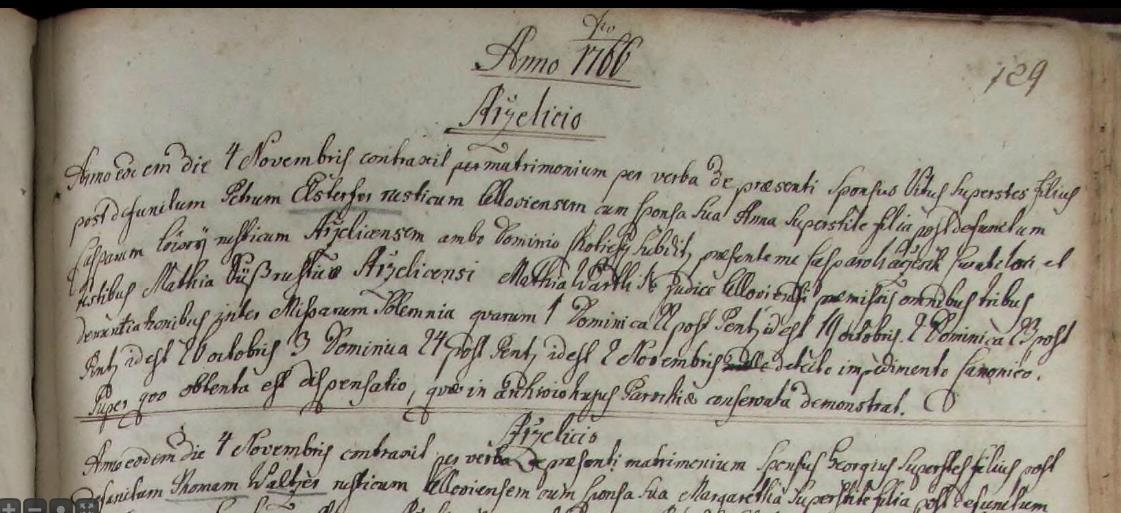 Pro
Anno 1766
129
Arzelicio
Anno eodem die 4 Novembris contraxit per matrimonium per verba de præsenti Sponsus Vitus Superstes filius
post defunctum Petrum rusticum Ulloviensem cum sponsa sua Anna Superstite filia post defunctum
Casparum rusticum Arzelicensem ambo Dominio subditi, præsente me Casparo et
testibus Mathia rustico Arzelicensi Mathia Judice Ulloviensi præmissis omnibus tribus
denuntiationibus inter Missarum Solemnia quarum 1 Dominica 22 post Pent, id est 19 octobris. 2 Dominica 23 post
Pent, id est 26 octobris 3 Dominica 24 post Pent, id est 2 Novembris detecto impedimento Canonico.
Super quo obtenta est dispensatio, quæ in archivio hujus Parochiæ conservata demonstrat.
Arzelicio
Anno eodem die 4 Novembris contraxit per verba de præsenti matrimonium Sponsus Georgius Superstes filius post
defunctum Thomam Waltger rusticum Ulloviensem cum sponsa sua Margaretha Superstite filia post defunctum